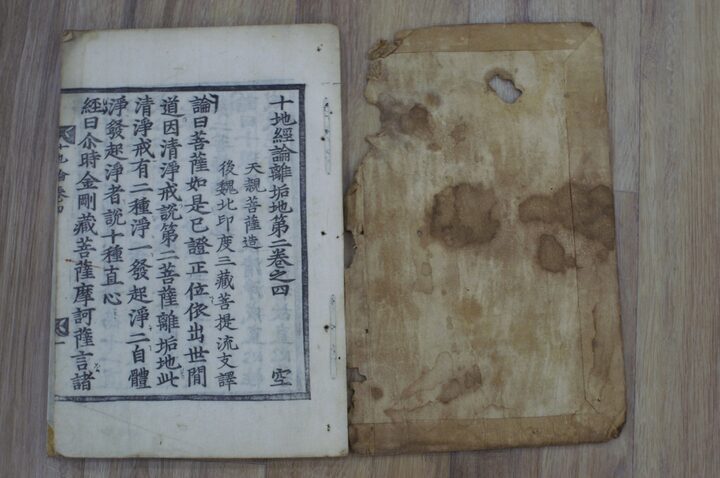 十地經論離垢地第二卷之四 空
天親菩薩造
後魏北印度三藏菩提流支譯
論曰菩薩如是已證正位依出世間
道因清淨戒說第二菩薩離垢地此
清淨戒有二種淨一發起淨二自體
淨發起淨者說十種直心
經曰尒時金剛藏菩薩摩訶薩言諸
十地論卷四